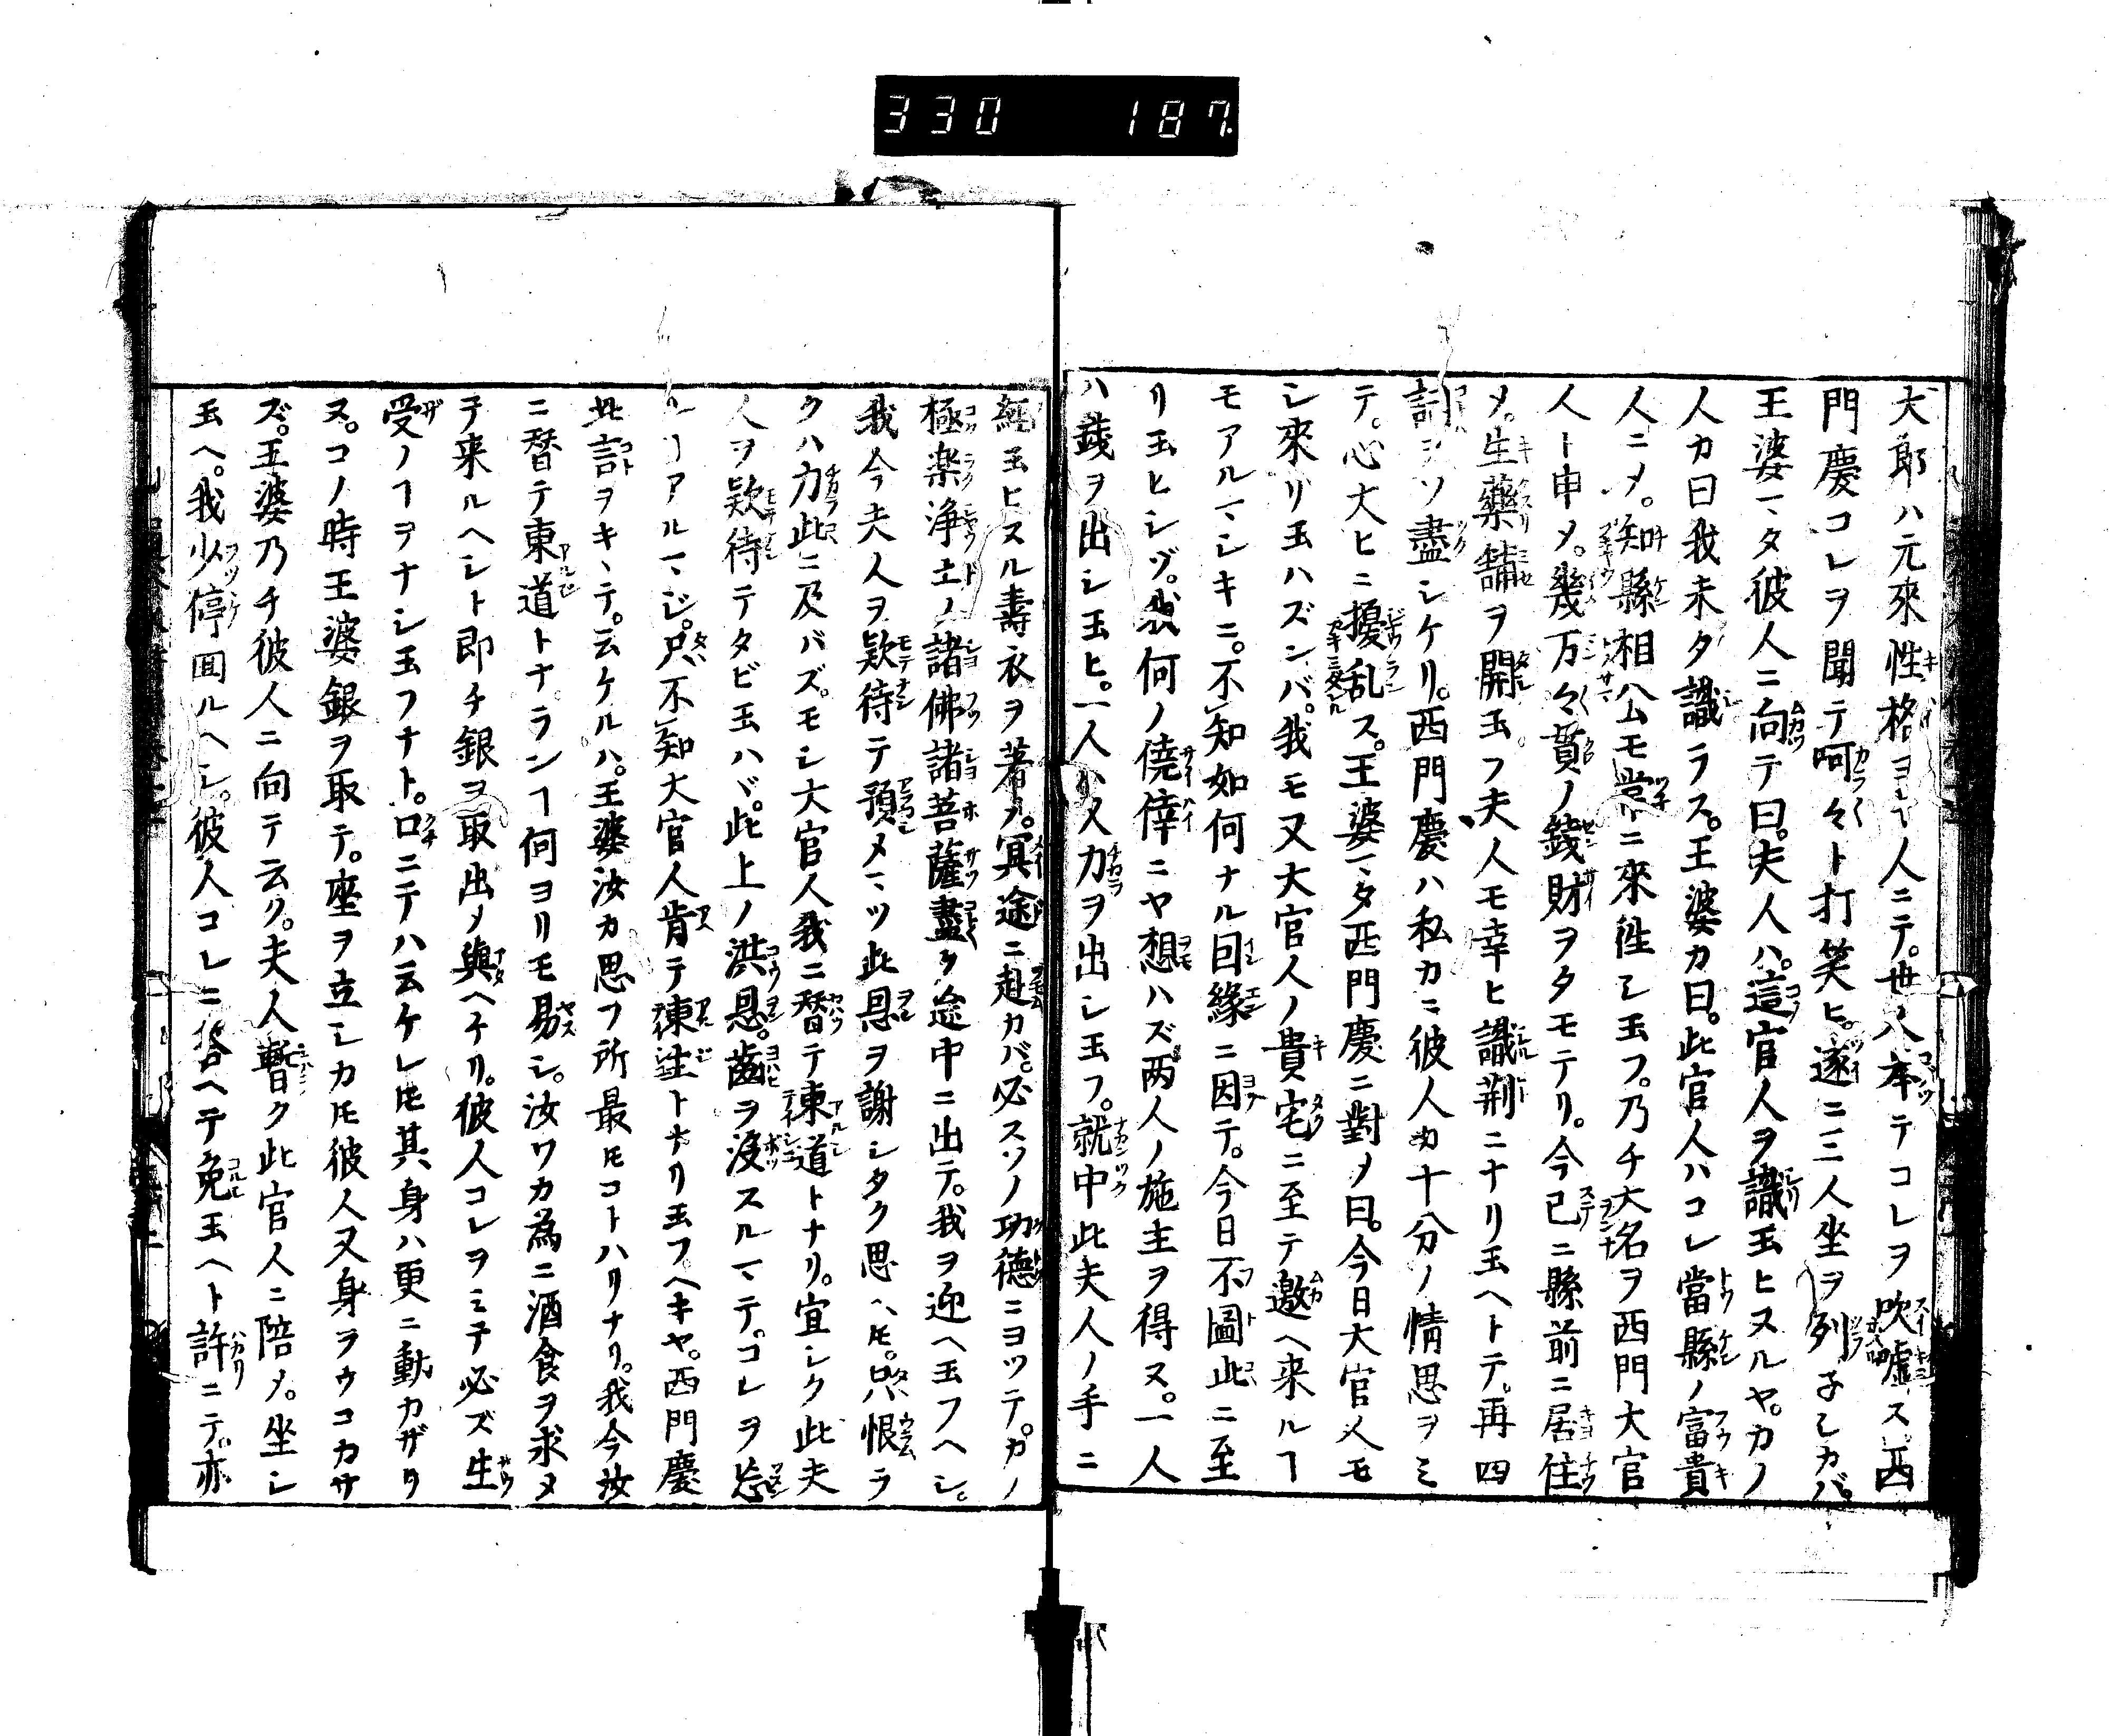 330 187
大郎ハ元來性格ヨキ人ニテ。世ノ人本テコレヲ吹嘘ス西
門慶コレヲ聞テ呵々ト打笑ヒ。遂ニ三人坐ヲ列子シカバ。
王婆マタ彼人ニ向テ曰。夫人ハ。這官人ヲ識玉ヒヌルヤ。カノ
人カ曰我未タ識ラス。王婆カ曰。此官人ハコレ當縣ノ富貴
人ニメ。知縣相公モ常ニ來往シ玉フ。乃チ大名ヲ西門大官
人ト申メ。幾万々貫ノ錢財ヲタモテリ。今已ニ縣前ニ居住
メ。生藥舗ヲ開玉フ夫人モ幸ヒ識荆ニナリ玉ヘトテ。再四
詞ヲソ盡シケリ。西門慶ハ私カニ彼人カ十分ノ情思ヲミ
テ。心大ヒニ擾乱ス。王婆マタ西門慶ニ對メ曰。今日大官人モ
シ來リ玉ハズンバ。我モ又大官人ノ貴宅ニ至テ邀ヘ来ルヿ
モアルマシキニ。不知如何ナル因緣ニ因テ。今日不圖此ニ至
リ玉ヒシゾ。我何ノ僥倖ニヤ想ハズ两人ノ施主ヲ得ヌ。一人
ハ錢ヲ出シ玉ヒ。一人ハ又力ヲ出シ玉フ。就中此夫人ノ手ニ
縫玉ヒヌル壽衣ヲ著メ。冥途ニ赴カバ。必スソノ功德ニヨツテ。カノ
極楽浄土ノ諸佛諸菩薩盡ク途中ニ出テ。我ヲ迎ヘ玉フヘシ。
我今夫人ヲ欵待テ預メマツ此恩ヲ謝シタク思ヘ𪜈。只恨ラ
クハ力此ニ及バズ。モシ大官人我ニ替テ東道トナリ。宜シク此夫
人ヲ欵待テタビ玉ハヾ。此上ノ洪恩。齒ヲ没スルマテ。コレヲ忘
ルヿアルマジ。只不知大官人肯テ東道トナリ玉フヘキヤ。西門慶
此言ヲキヽテ。云ケルハ。王婆汝カ思フ所最𪜈コトハリナリ。我今汝
ニ替テ東道トナランヿ何ヨリモ易シ。汝ワカ為ニ酒食ヲ求メ
テ来ルヘシト即チ銀ヲ取出メ與ヘケリ。彼人コレヲミテ必ズ生
受ノヿヲナシ玉フナト。口ニテハ云ケレ𪜈其身ハ更ニ動カザリ
ヌ。コノ時王婆銀ヲ取テ。座ヲ立シカ𪜈彼人又身ヲウコカサ
ズ。王婆乃チ彼人ニ向テ云ク。夫人暫ク此官人ニ陪メ。坐シ
玉ヘ。我少停囬ルヘシ。彼人コレニ答ヘテ免玉ヘト許ニテ。亦